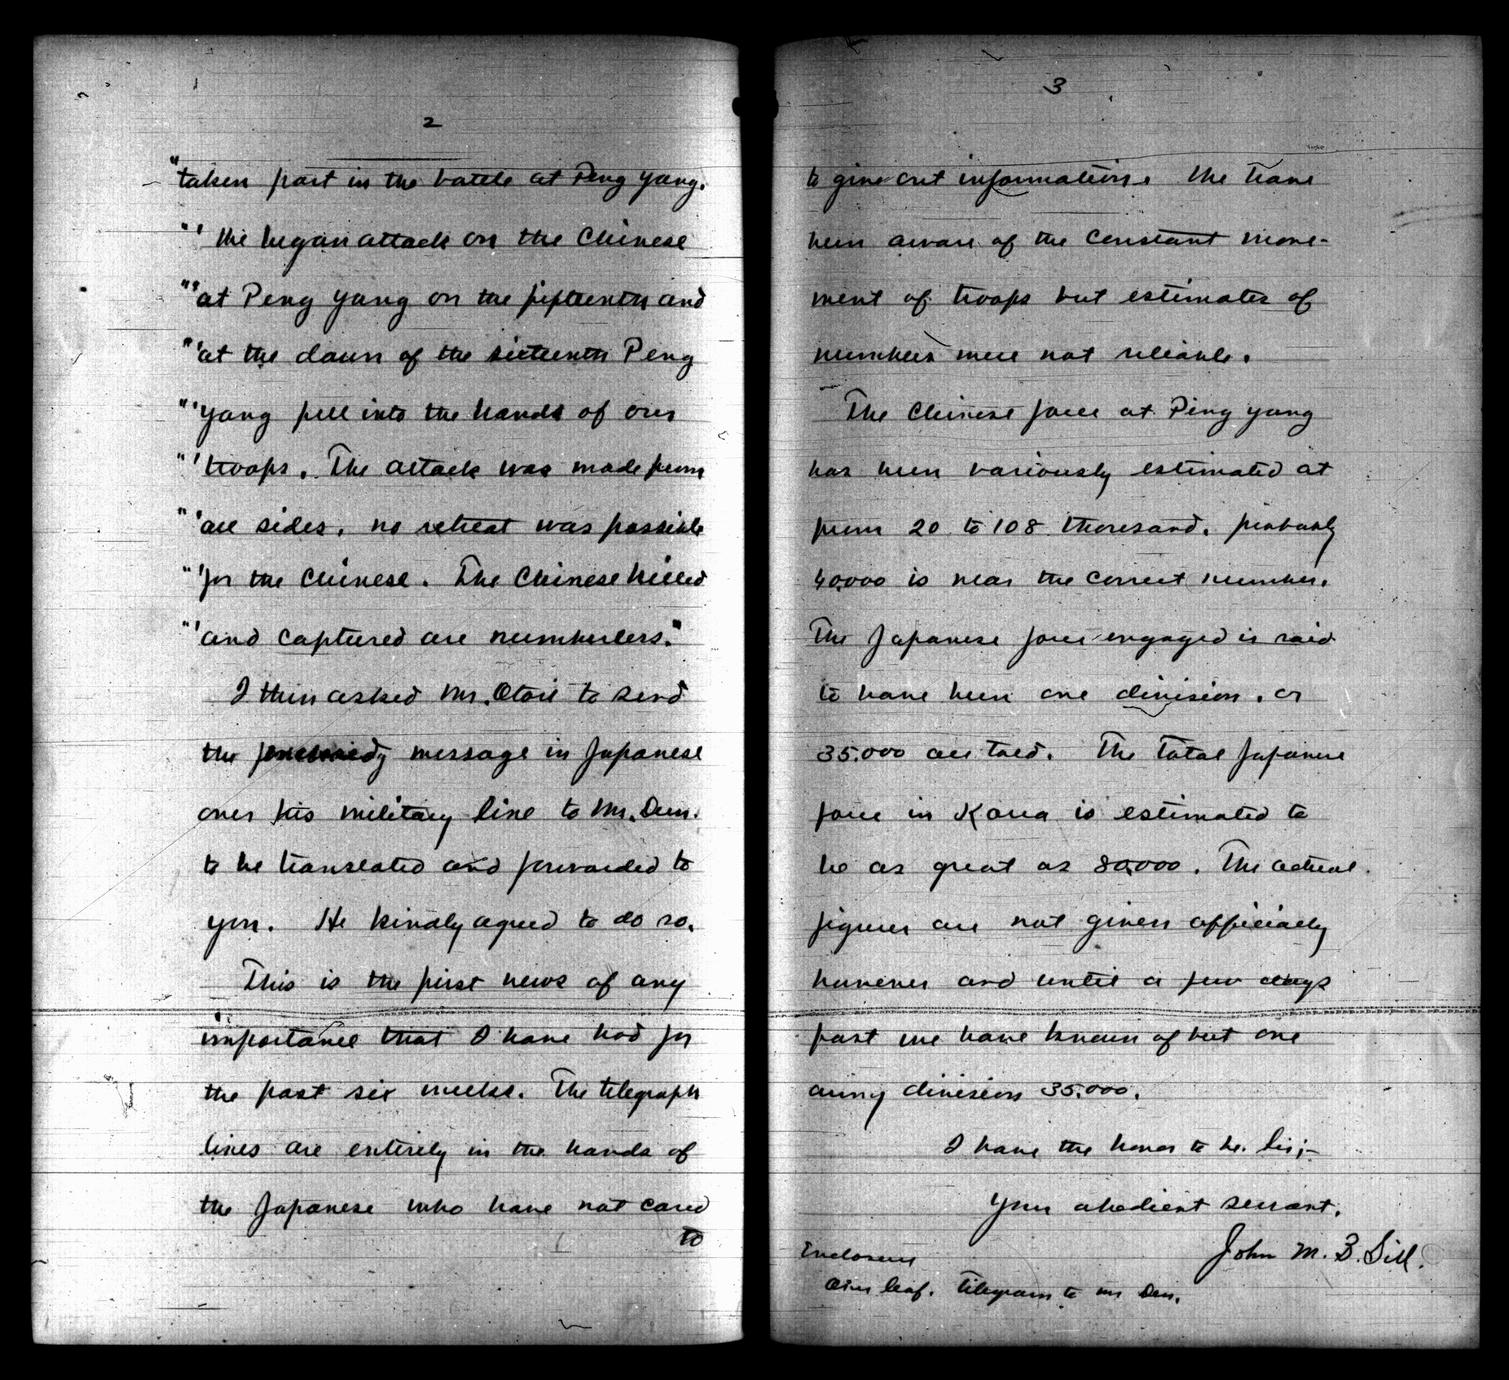 2
"taken part in the battle at Peng Yang.
"' We began attack on the Chinese
"'at Peng Yang on the fifteenth and
"'at the dawn of the sixteenth Peng
"'Yang fell into the hands of our
"'troops. The attack was made from
"'all sides. no retreat was possible
"'for the Chinese. The Chinese killed
"'and captured are numberless."
I then asked Mr. Otori to send
the message in Japanese
over his military line to Mr. Dun.
to be translated and forwarded to
you. He kindly agreed to do so.
This is the first news of any
importance that I have had for
the past six weeks. The telegraph
lines are entirely in the hands of
the Japanese who have not cared
to
3
to give out information. We have
been aware of the constant move-
ment of troops but estimates of
numbers were not reliable.
The Chinese force at Ping Yang
has been variously estimated at
from 20 to 108 thousand. probably
40,000 is near the correct number.
The Japanese force engaged is said
to have been one division, or
35.000 all told. The total Japanese
force in Korea is estimated to
be as great as 80,000. The actual
figures are not given officially
however and until a few days
past we have known of but one
army division 35.000.
I have the honor to be. Sir;-
Your obedient servant.
John M. B. Sill.
Enclosure
Over leaf. Telegram to Mr Dun.